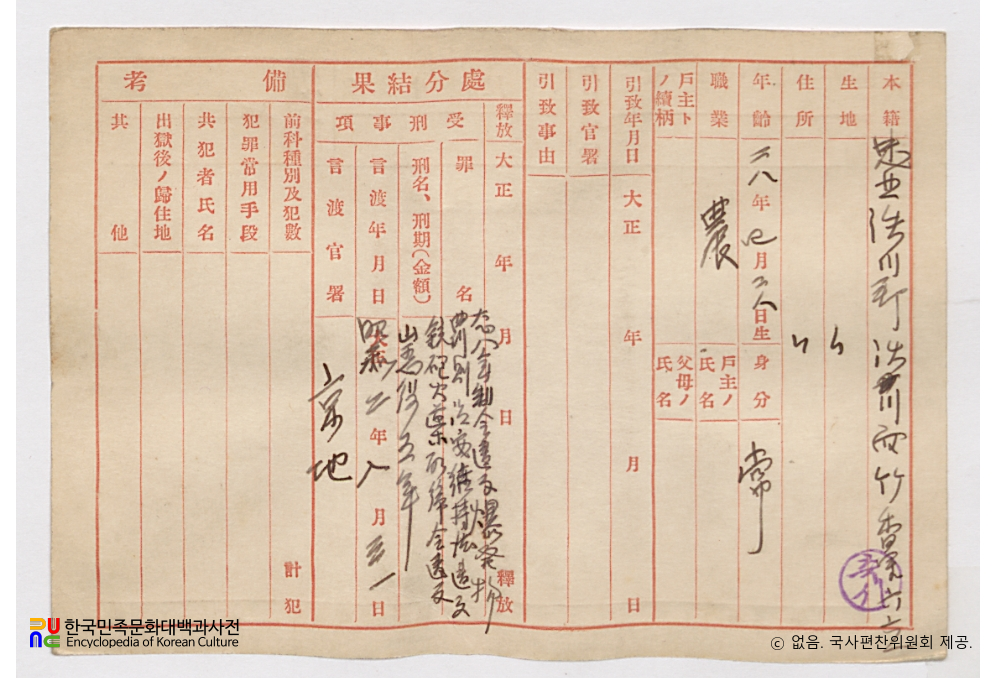 本籍
生地
住所
年齡 二八年 月 日生
身分 常
職業 農
戶主ノ氏名
戶主トノ續柄
父母ノ氏名
引致年月日 大正 年 月 日
引致官署
引致事由
處分結果
釋放 大正 年 月 日 釋放
受刑事項
罪名 大正八年制令違反爆発物
罰則治安維持法違反
銃砲火薬取締令違反
刑名、刑期(金額) 懲役五年
言渡年月日 昭和二年 月 日
言渡官署 京地
備考
前科種別及犯數 計 犯
犯罪常用手段
共犯者氏名
出獄後ノ歸住地
其他
한국민족문화대백과사전
Encyclopedia of Korean Culture
ⓒ 없음. 국사편찬위원회 제공.